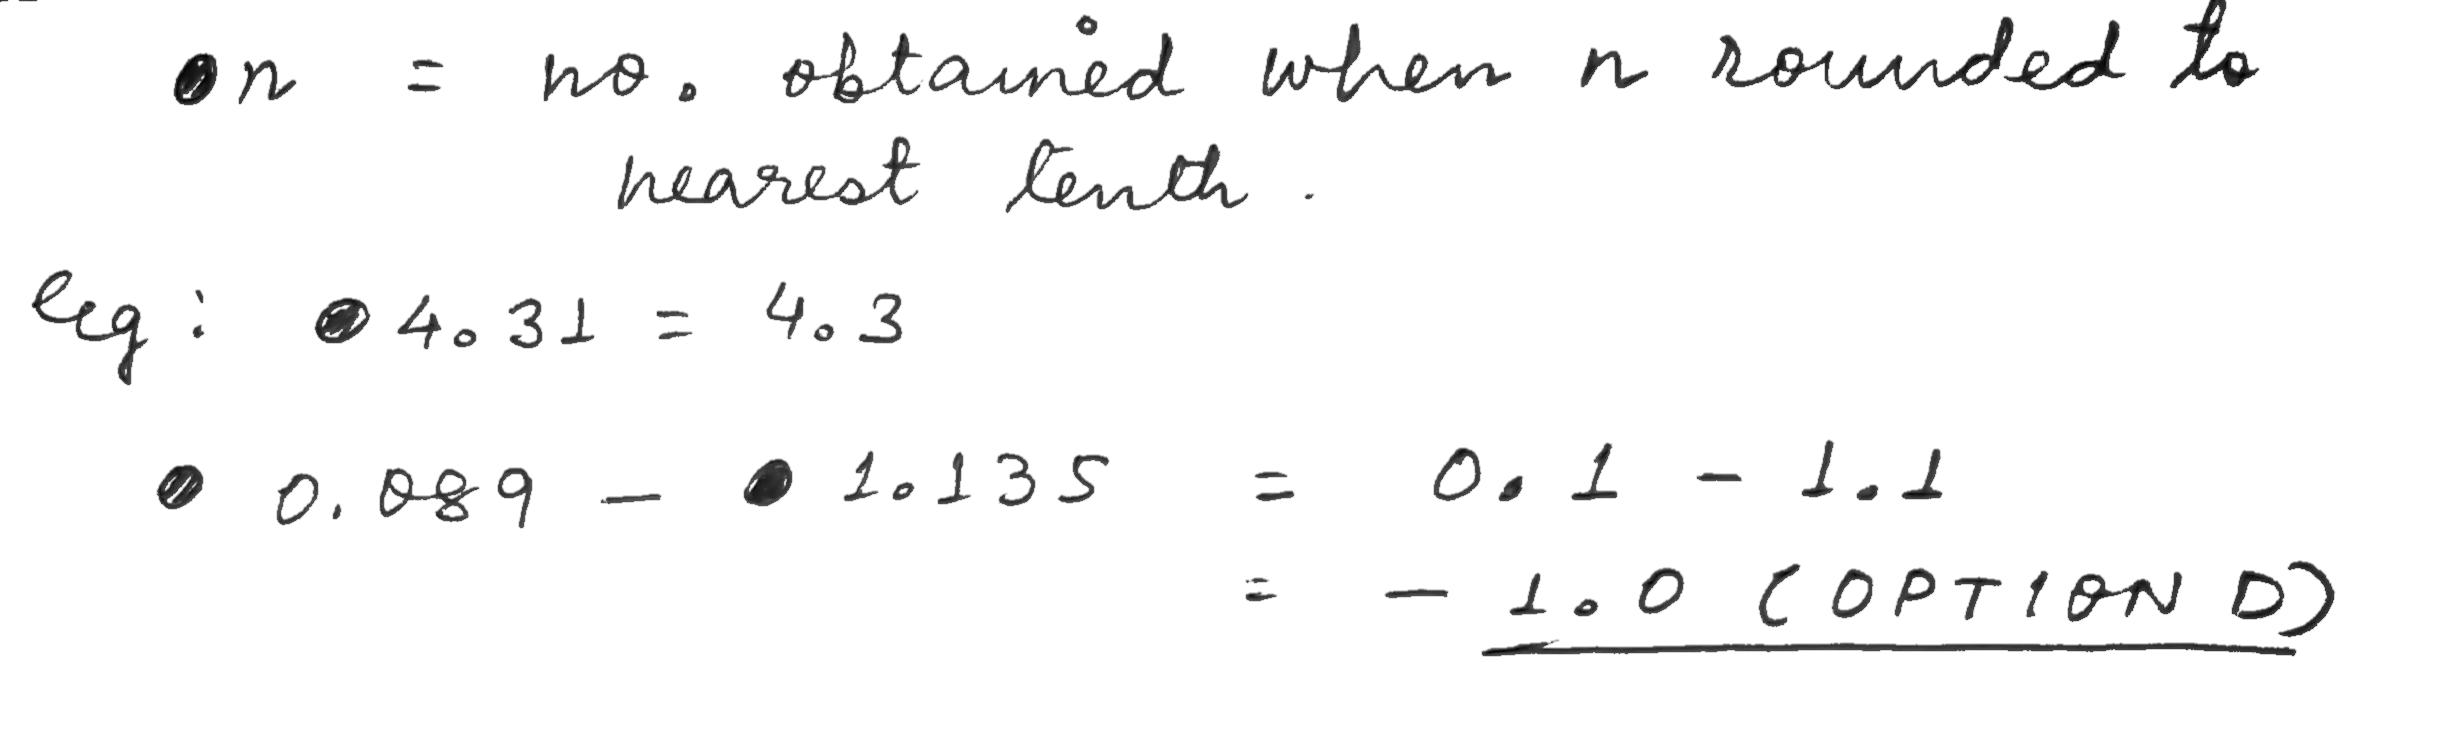 ●n = no. obtained when n rounded to
nearest tenth.
eg: ●4.31 = 4.3
● 0.089 - ● 1.135 = 0.1 - 1.1
= - 1.0 (OPTION D)